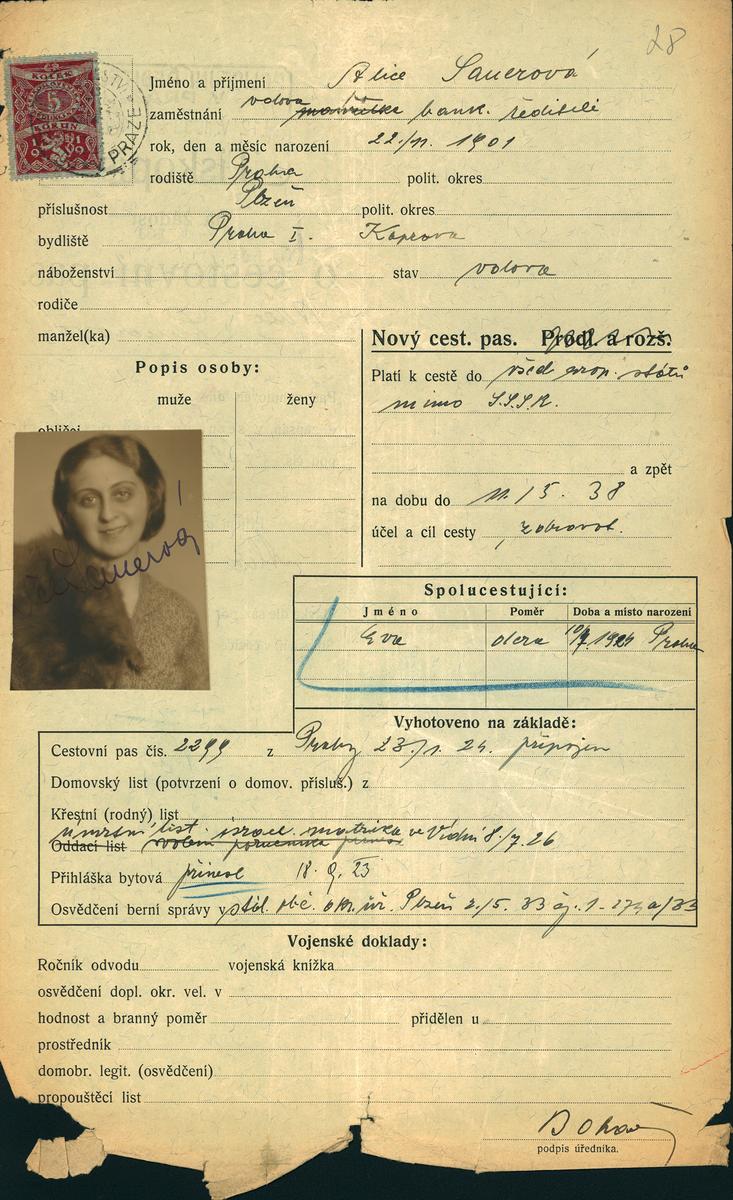 28
KOLEK
5
KORUN
1919
PRAZE
Jméno a příjmení Alice Sauerová
zaměstnání vdova manželka bank. ředitele
rok, den a měsíc narození 22./11. 1901
rodiště Praha polit. okres
příslušnost Plzeň polit. okres
bydliště Praha I. Kaprova
náboženství stav vdova
rodiče
manžel(ka)
Nový cest. pas. Prodl. a rozš.
Popis osoby:
Platí k cestě do všech evrop. států
muže ženy
mimo S.S.S.R.
obličej
a zpět
na dobu do 11./5. 38
účel a cíl cesty zotavov.
Sauerová
Spolucestující:
Jméno Poměr Doba a místo narození
Eva dcera Praha
Vyhotoveno na základě:
Cestovní pas čís. 2299 z Prahy 23./1. 24. připojen
Domovský list (potvrzení o domov. přísluš.) z
Křestní (rodný) list
úmrtní list israel. matrika ve Vídni 8./7. 26
Oddací list
Přihláška bytová přinesl 18. 9. 23
Osvědčení berní správy v Plzeň 2./5. 33
Vojenské doklady:
Ročník odvodu vojenská knížka
osvědčení dopl. okr. vel. v
hodnost a branný poměr přidělen u
prostředník
domobr. legit. (osvědčení)
propouštěcí list
podpis úředníka.